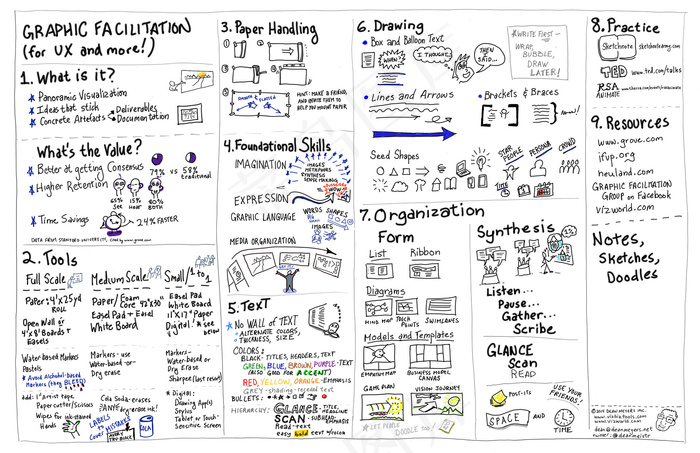 GRAPHIC FACILITATION
(for UX and more!)
1. What is it?
Panoramic Visualization
Ideas that stick
Concrete Artefacts
Deliverables
Documentation
What's the Value?
Better at getting Consensus
79% vs 58%
traditional
Higher Retention
65% 15% 80%
See Hear BOTH
Time Savings
24% FASTER
2. Tools
Full Scale
Paper: 4'x25yd
ROLL
Open Wall or
4'x8' Boards +
Easels
Water-based Markers
Pastels
Avoid Alcohol-based
Markers (they BLEED)
Add: 1" artist tape
Paper cutter/scissors
Wipes for ink-stained
Hands
Medium Scale
Paper/Foam
Core 42"x30"
Easel Pad +
White Board
Markers - use
Water-based - or
Dry Erase
LABELS
to
Cover
MISTAKES
Small/1 to 1
Easel Pad
White Board
11"x17" Paper
Digital! see below
Markers -
Water-based or
Dry Erase
Sharpee (lost resort)
Digital:
Drawing App(s)
Stylus
Tablet or Touch-
Sensitive Screen
3. Paper Handling
HINT: MAKE A FRIEND,
4. Foundational Skills
IMAGINATION
IMAGES
METAPHORS
SYNTHESIS
SENSE MAKING
WOW
EXPRESSION
GRAPHIC LANGUAGE
WORDS SHAPES
IMAGES
MEDIA ORGANIZATION
5. TEXT
No WALL of TEXT
- ALTERNATE COLORS,
- THICKNESS, SIZE
COLORS:
BLACK - TITLES, HEADERS, TEXT
GREEN, BLUE, BROWN, PURPLE - TEXT
(also GOOD for ACCENT)
RED, YELLOW, ORANGE - EMPHASIS
GREY - shading - receded text
BULLETS:
HIERARCHY:
GLANCE - TITLE, HEADLINE
SCAN - SUBHEAD, EMPHASIS
Read - text
easy bold text w/color
6. Drawing
Box and Balloon Text
WHEN?
I THOUGHT
THEN I
SAID...
WRITE FIRST -
WRAP,
BUBBLE,
DRAW
LATER!
Lines and Arrows
Brackets & Braces
Seed Shapes
STAR
PEOPLE
PERSONA
CROWD
TIME
7. Organization
Form
List
Ribbon
Diagrams
MIND MAP
TOUCH
POINTS
SWIMLANES
Models and Templates
EMPATHY MAP
BUSINESS MODEL
CANVAS
GAME PLAN
VISION JOURNEY
LET PEOPLE DOODLE TOO!
Synthesis
Listen...
Pause...
Gather...
Scribe
GLANCE
Scan
READ
POST-ITS
USE YOUR
FRIENDS!
SPACE AND
TIME
8. Practice
Sketchnote
sketchnotearmy.com
TED
www.ted.com/talks
RSA
ANIMATE
9. Resources
www.grove.com
ifvp.org
heuland.com
GRAPHIC FACILITATION
GROUP on Facebook
vizworld.com
Notes,
Sketches,
Doodles
www.vizworld.com
dean@deanmeyers.net
twitter: @deanmeistr